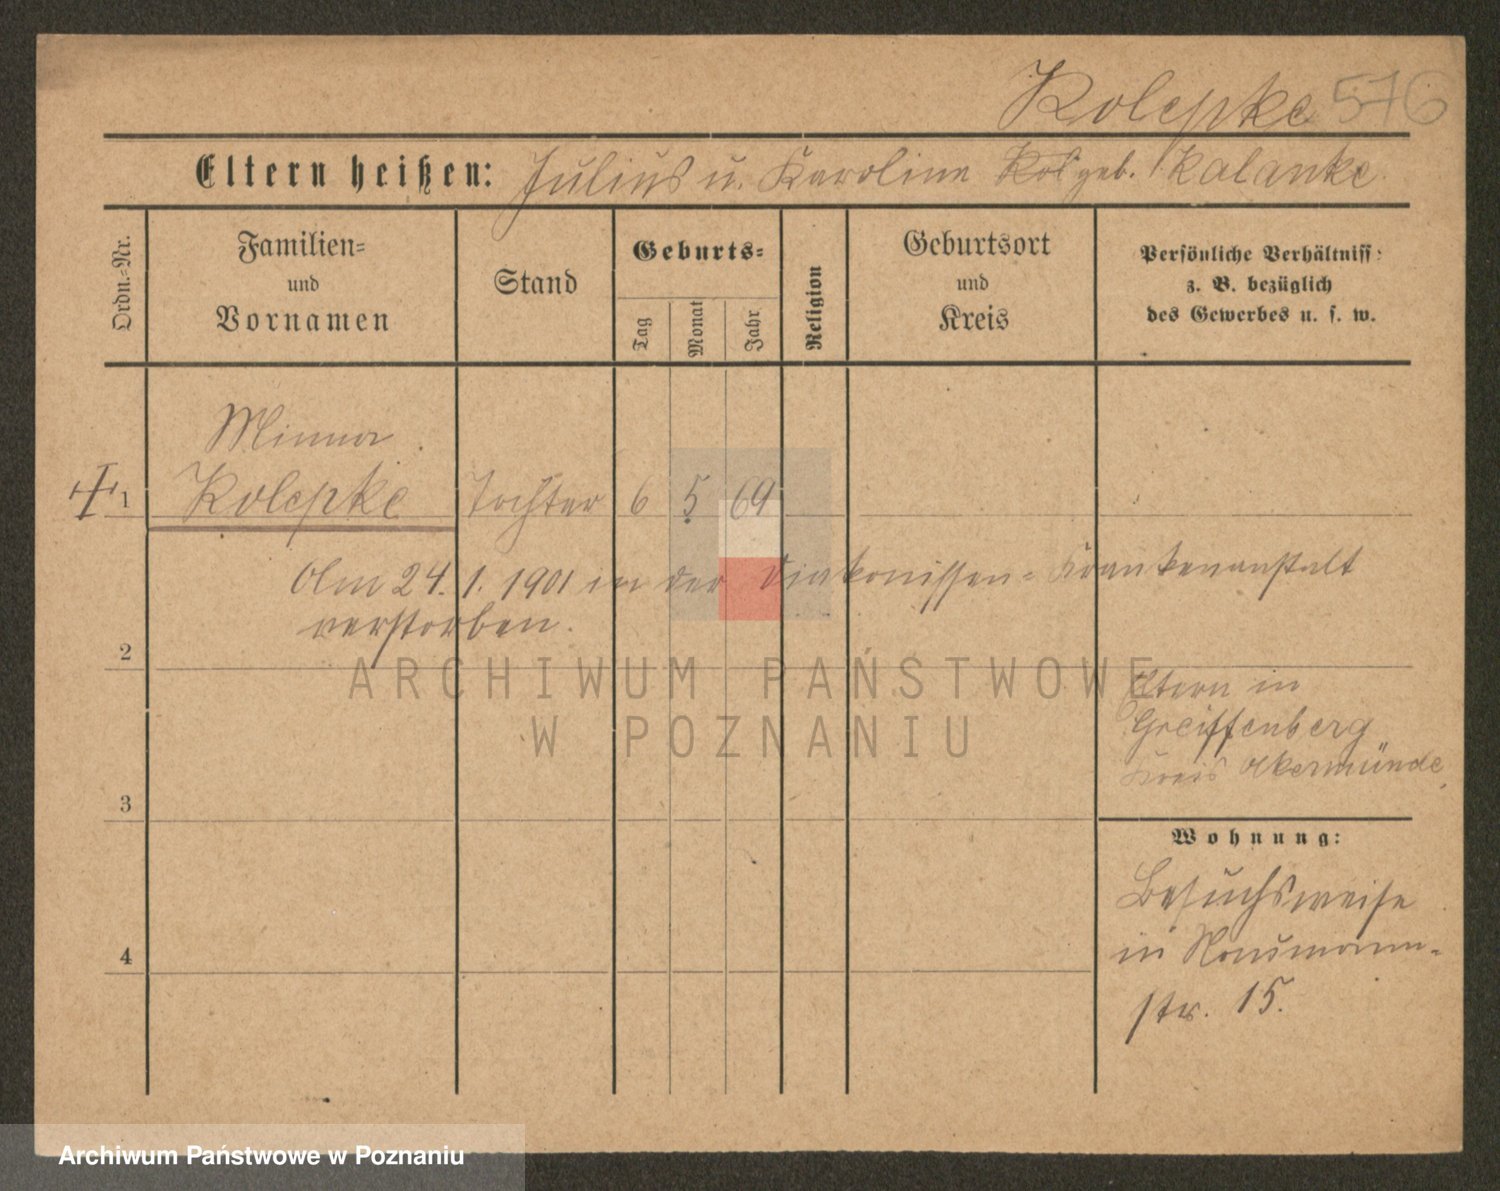 Kolepke 576
Eltern heißen: Julius u. Karoline Kol geb. Kalanke
Ordn.=Nr.
Familien=
und
Vornamen
Stand
Geburts=
Tag
Monat
Jahr
Religion
Geburtsort
und
Kreis
Persönliche Verhältniss:
z. B. bezüglich
des Gewerbes u. s. w.
Minna
1 Kolepke Tochter 6 5 69
Am 24. 1. 1901 in der Diakonissen=Krankenanstalt
verstorben.
2
ARCHIWUM PAŃSTWOWE
W POZNANIU
Eltern in
Greiffenberg
Kreis Ukermünde,
3
Wohnung:
Besuchsweise
in Naumann=
str. 15.
4
Archiwum Państwowe w Poznaniu